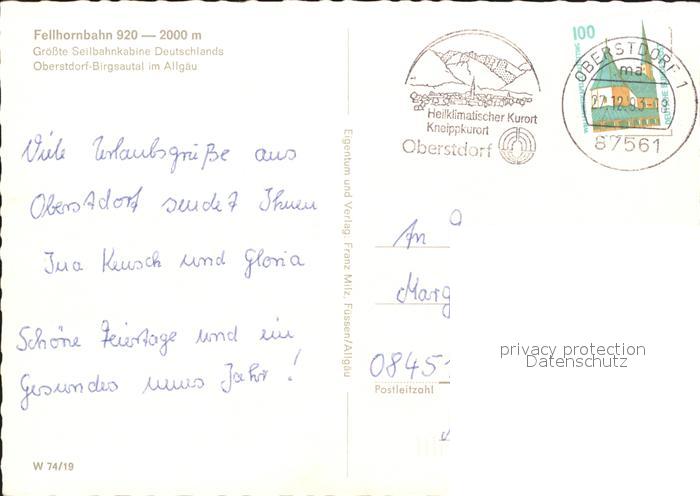 Fellhornbahn 920 — 2000 m
Größte Seilbahnkabine Deutschlands
Oberstdorf-Birgsautal im Allgäu
Viele Urlaubsgrüße aus
Oberstdorf sendet Ihnen
Ina Keusch und Gloria
Schöne Feiertage und ein
Gesundes neues Jahr!
W 74/19
Eigentum und Verlag: Franz Milz, Füssen/Allgäu
Heilklimatischer Kurort
Kneippkurort
Oberstdorf
100
OBERSTDORF 1
ma
27.12.93-18
87561
An
Marg
0845
Postleitzahl
privacy protection
Datenschutz